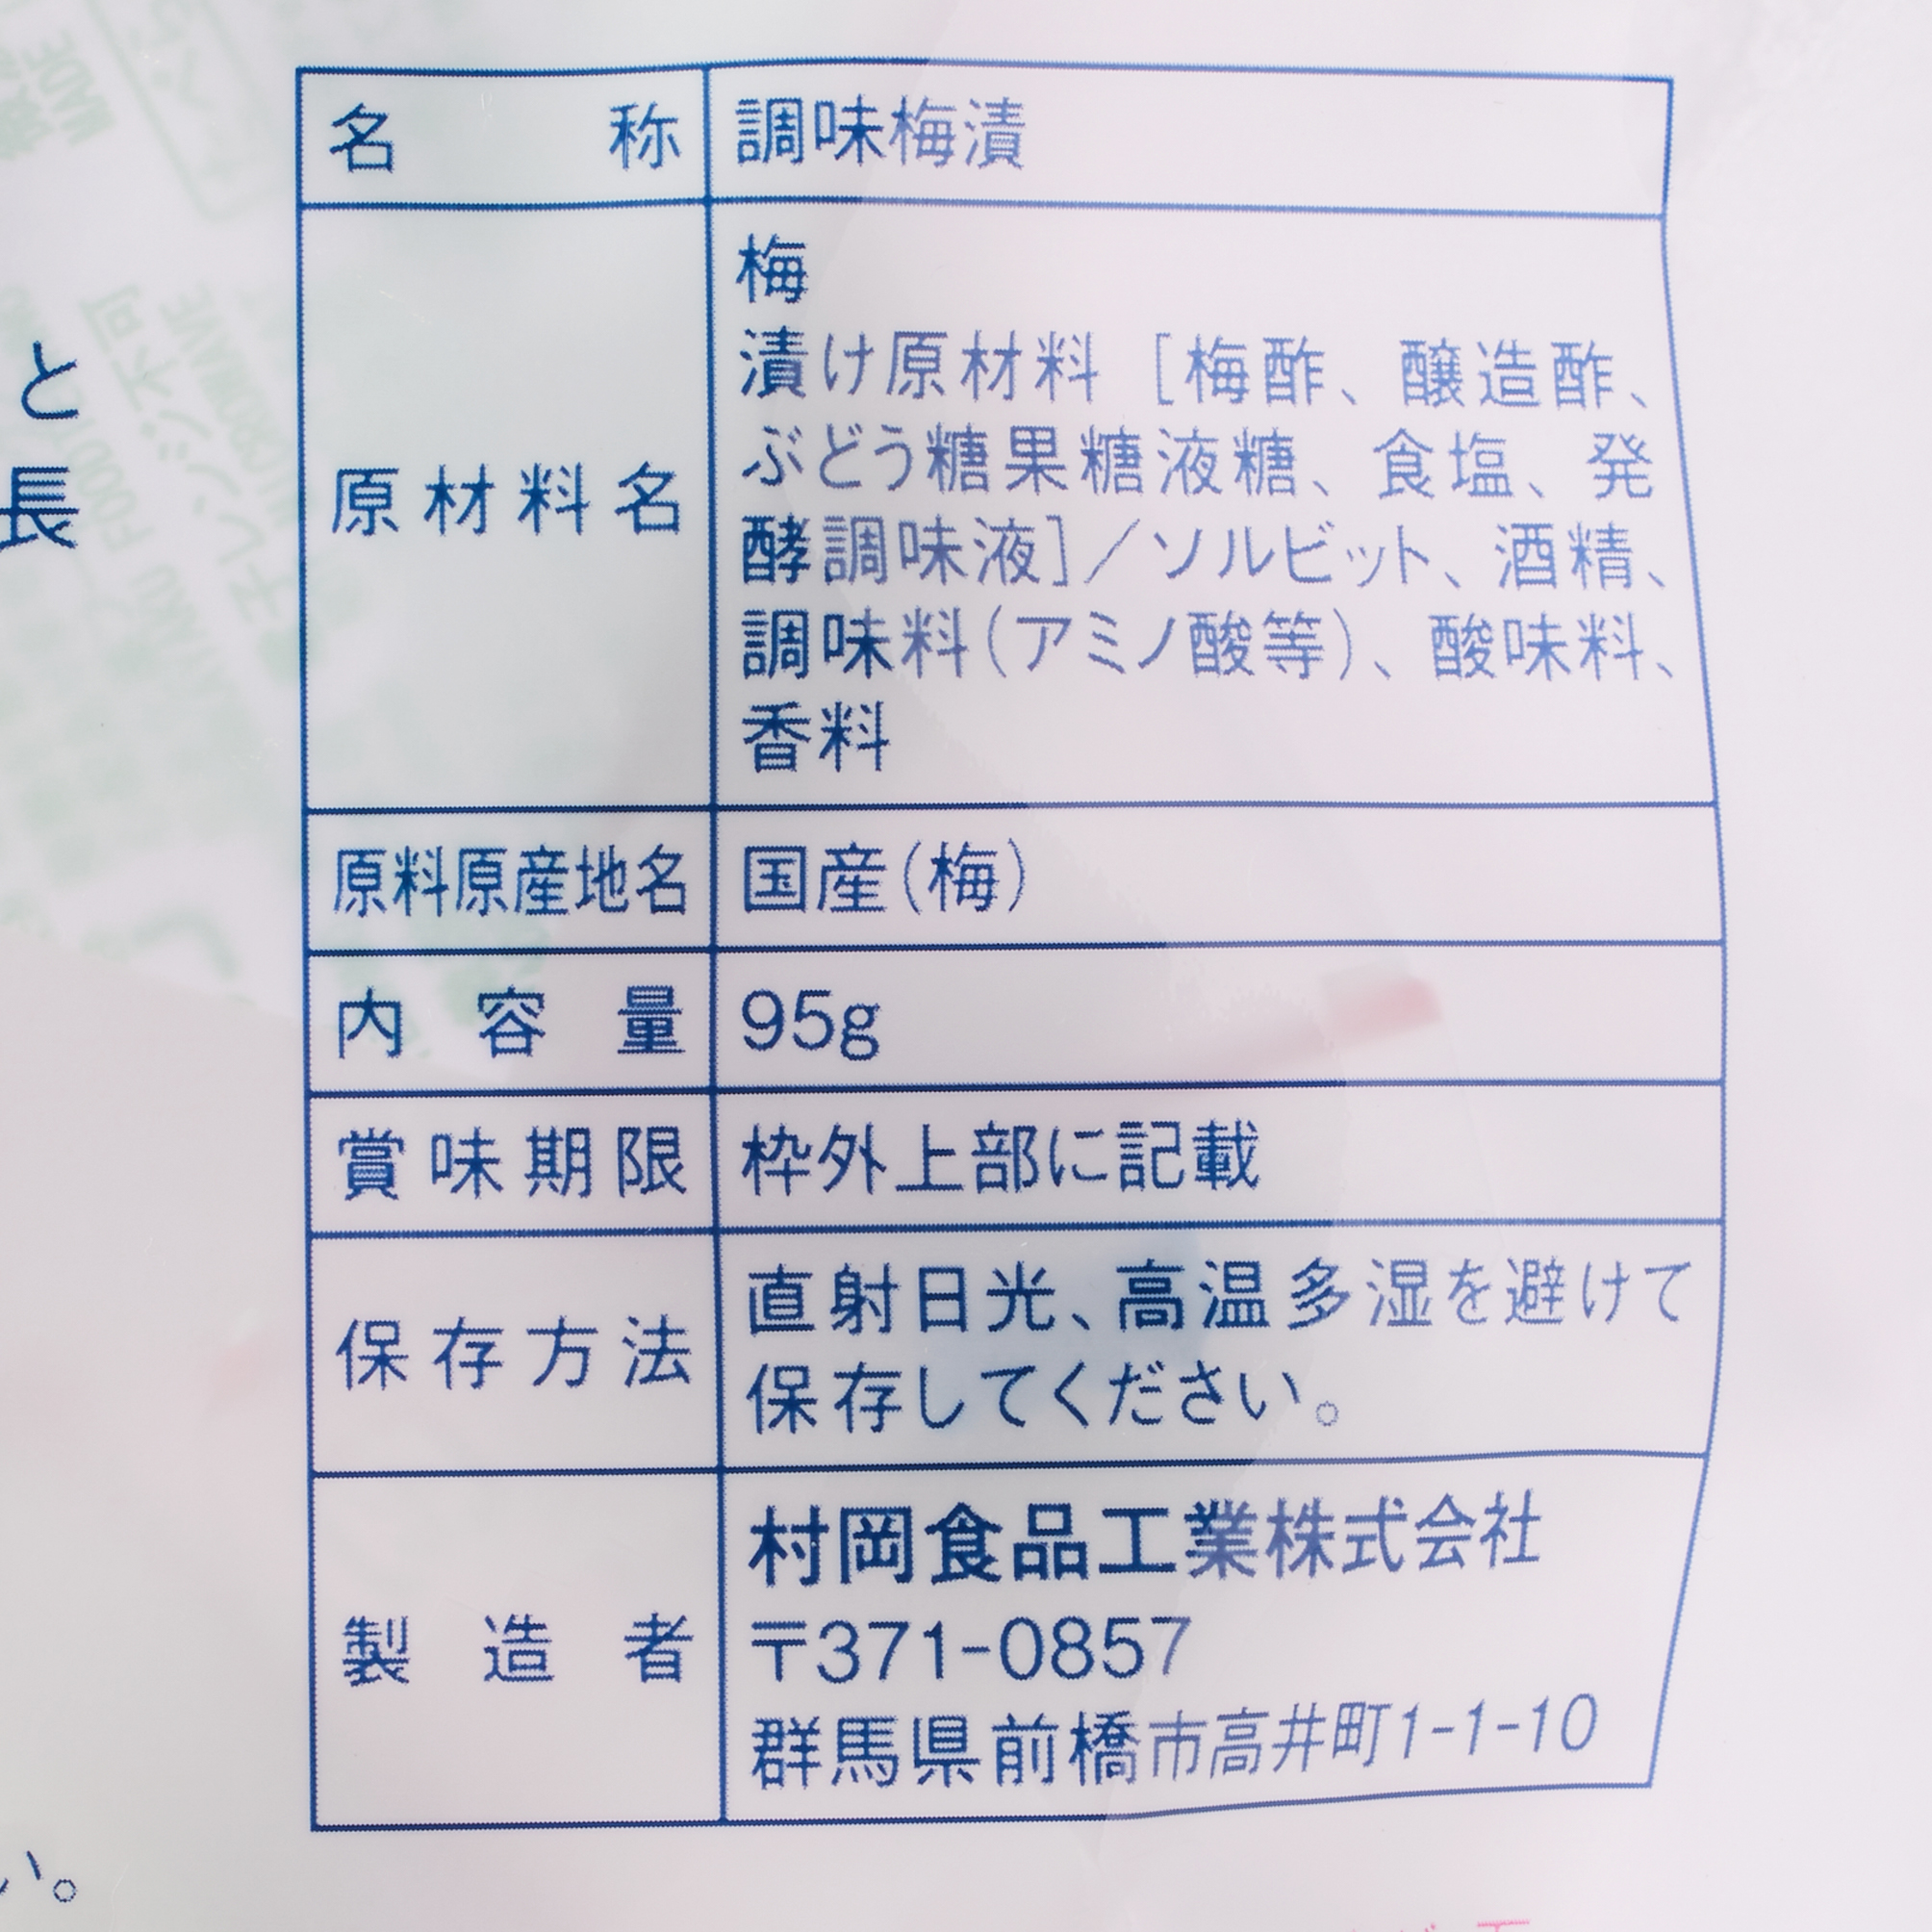 と
長
名称 調味梅漬
原材料名
梅
漬け原材料［梅酢、醸造酢、
ぶどう糖果糖液糖、食塩、発
酵調味液］／ソルビット、酒精、
調味料（アミノ酸等）、酸味料、
香料
原料原産地名 国産（梅）
内容量 95g
賞味期限 枠外上部に記載
保存方法
直射日光、高温多湿を避けて
保存してください。
製造者
村岡食品工業株式会社
〒371-0857
群馬県前橋市高井町1-1-10
い。